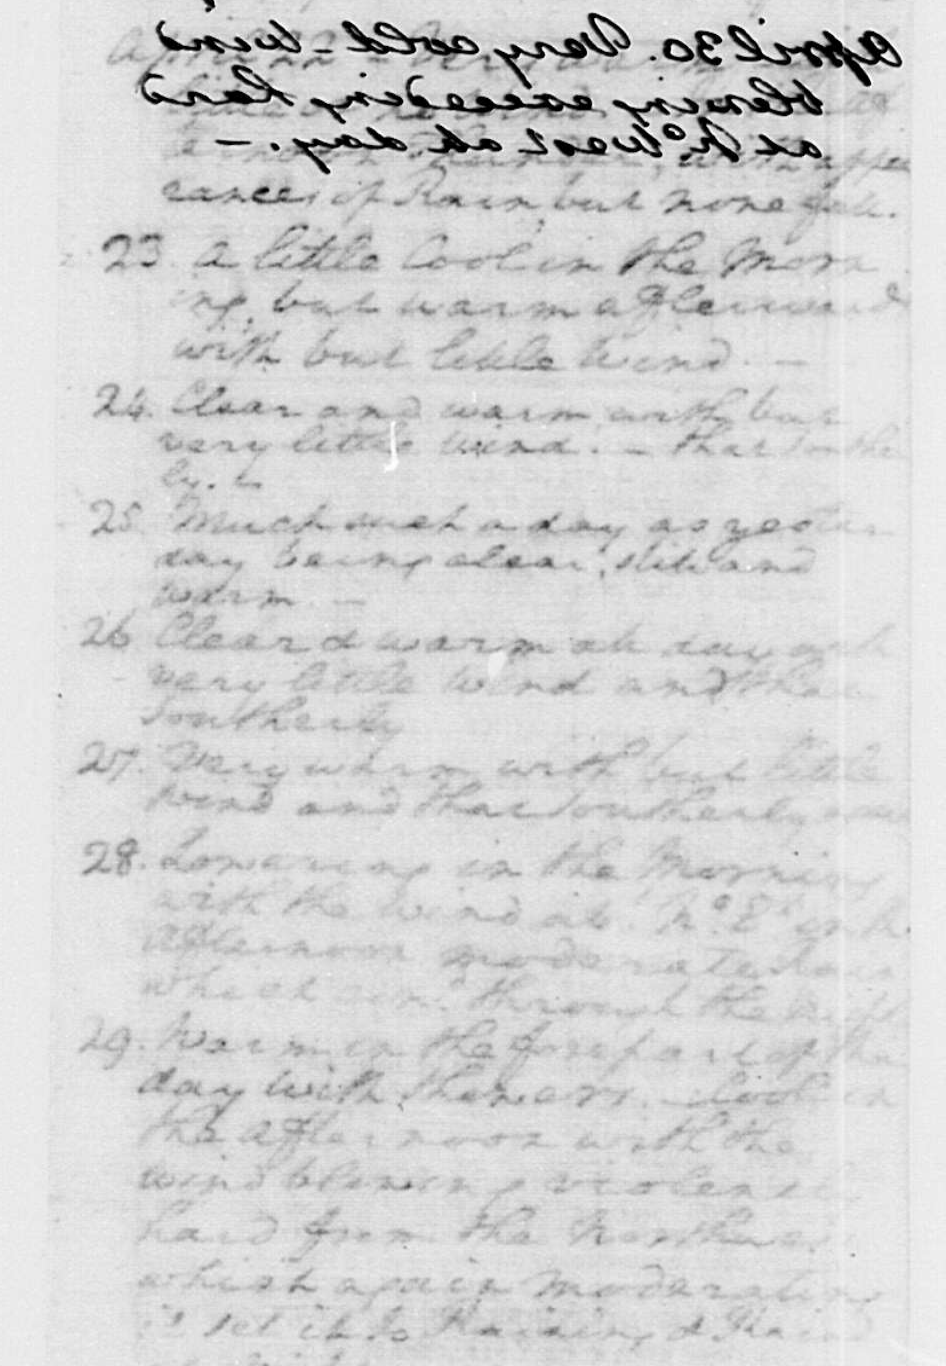 April 30. Very cold - wind
blowing exceeding hard
at No. West all day. —
April 22
rances of Rain but none fell.
23. A little Cool in the Morn
ing, but warm afterwards
with but little Wind. —
24. Clear and warm with but
very little Wind. — that Southe
ly. —
25. Much such a day as yester
day being clear, still and
warm —
26 Clear & warm all day with
very little Wind and that
Southerly
27. Very warm with but little
Wind and that Southerly
28. Lowering in the Morning
with the Wind at No. Et. in the
afternoon moderate Rain
which through the Night
29. Warm in the forepart of the
day with Showers. — Cool in
the afternoon with the
wind blowing violently
hard from the Northwest
which again moderating
it set in to Raining & Haild